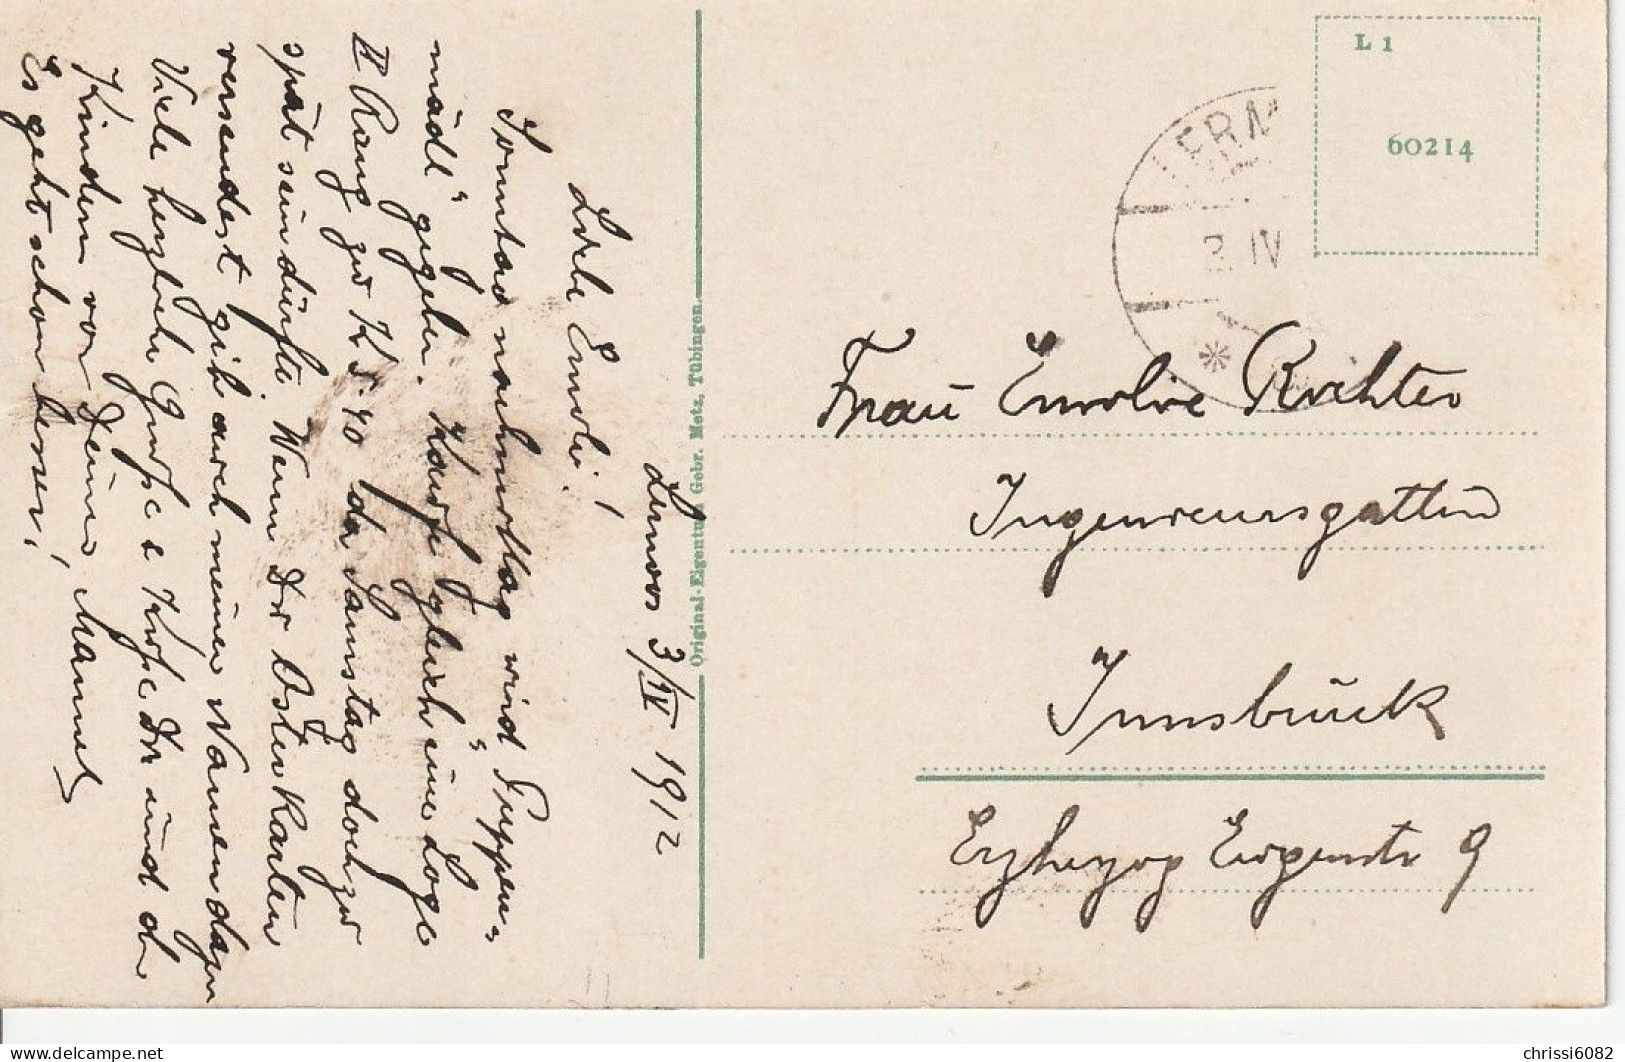 Lermoos 3/IV 1912
Liebe Emilie!
Sonntag nachmittag wird "Puppen=
mädl" gegeben. Kaufe gleich eine Loge
II Rang zu K 5.40 da Samstag doch zu
spät sein dürfte. Wenn Du Osterkarten
versendest gib auch meinen Namen dazu
Viele herzliche Grüße & Küße Dir und d
Kindern von Deinem Mannel
Es geht schon besser!
Original-Eigentum Gebr. Metz, Tübingen.
L 1
60214
LERM
3. IV
Frau Emilie Richter
Ingenieursgattin
Innsbruck
Erzherzog Eugenstr 9
chrissi6082